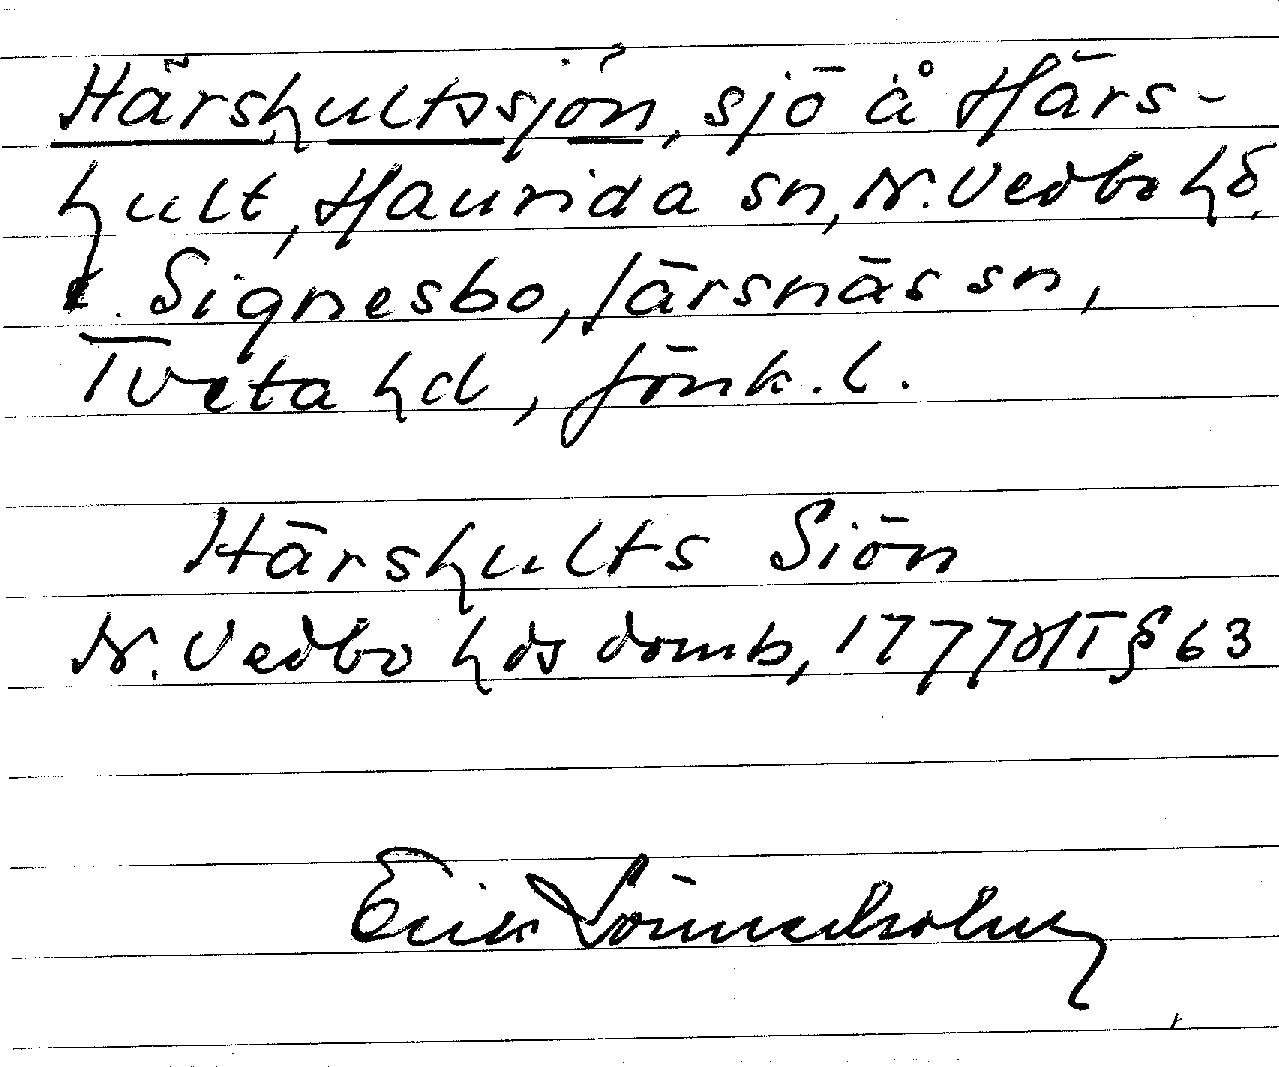 Härshultssjön, sjö å Härs-
hult, Haurida sn, N. Vedbo hd,
o. Signesbo, Järsnäs sn,
Tveta hd, Jönk. l.
Härshults Siön
N. Vedbo hds domb, 1777 § 63
Erik Lönnerholm